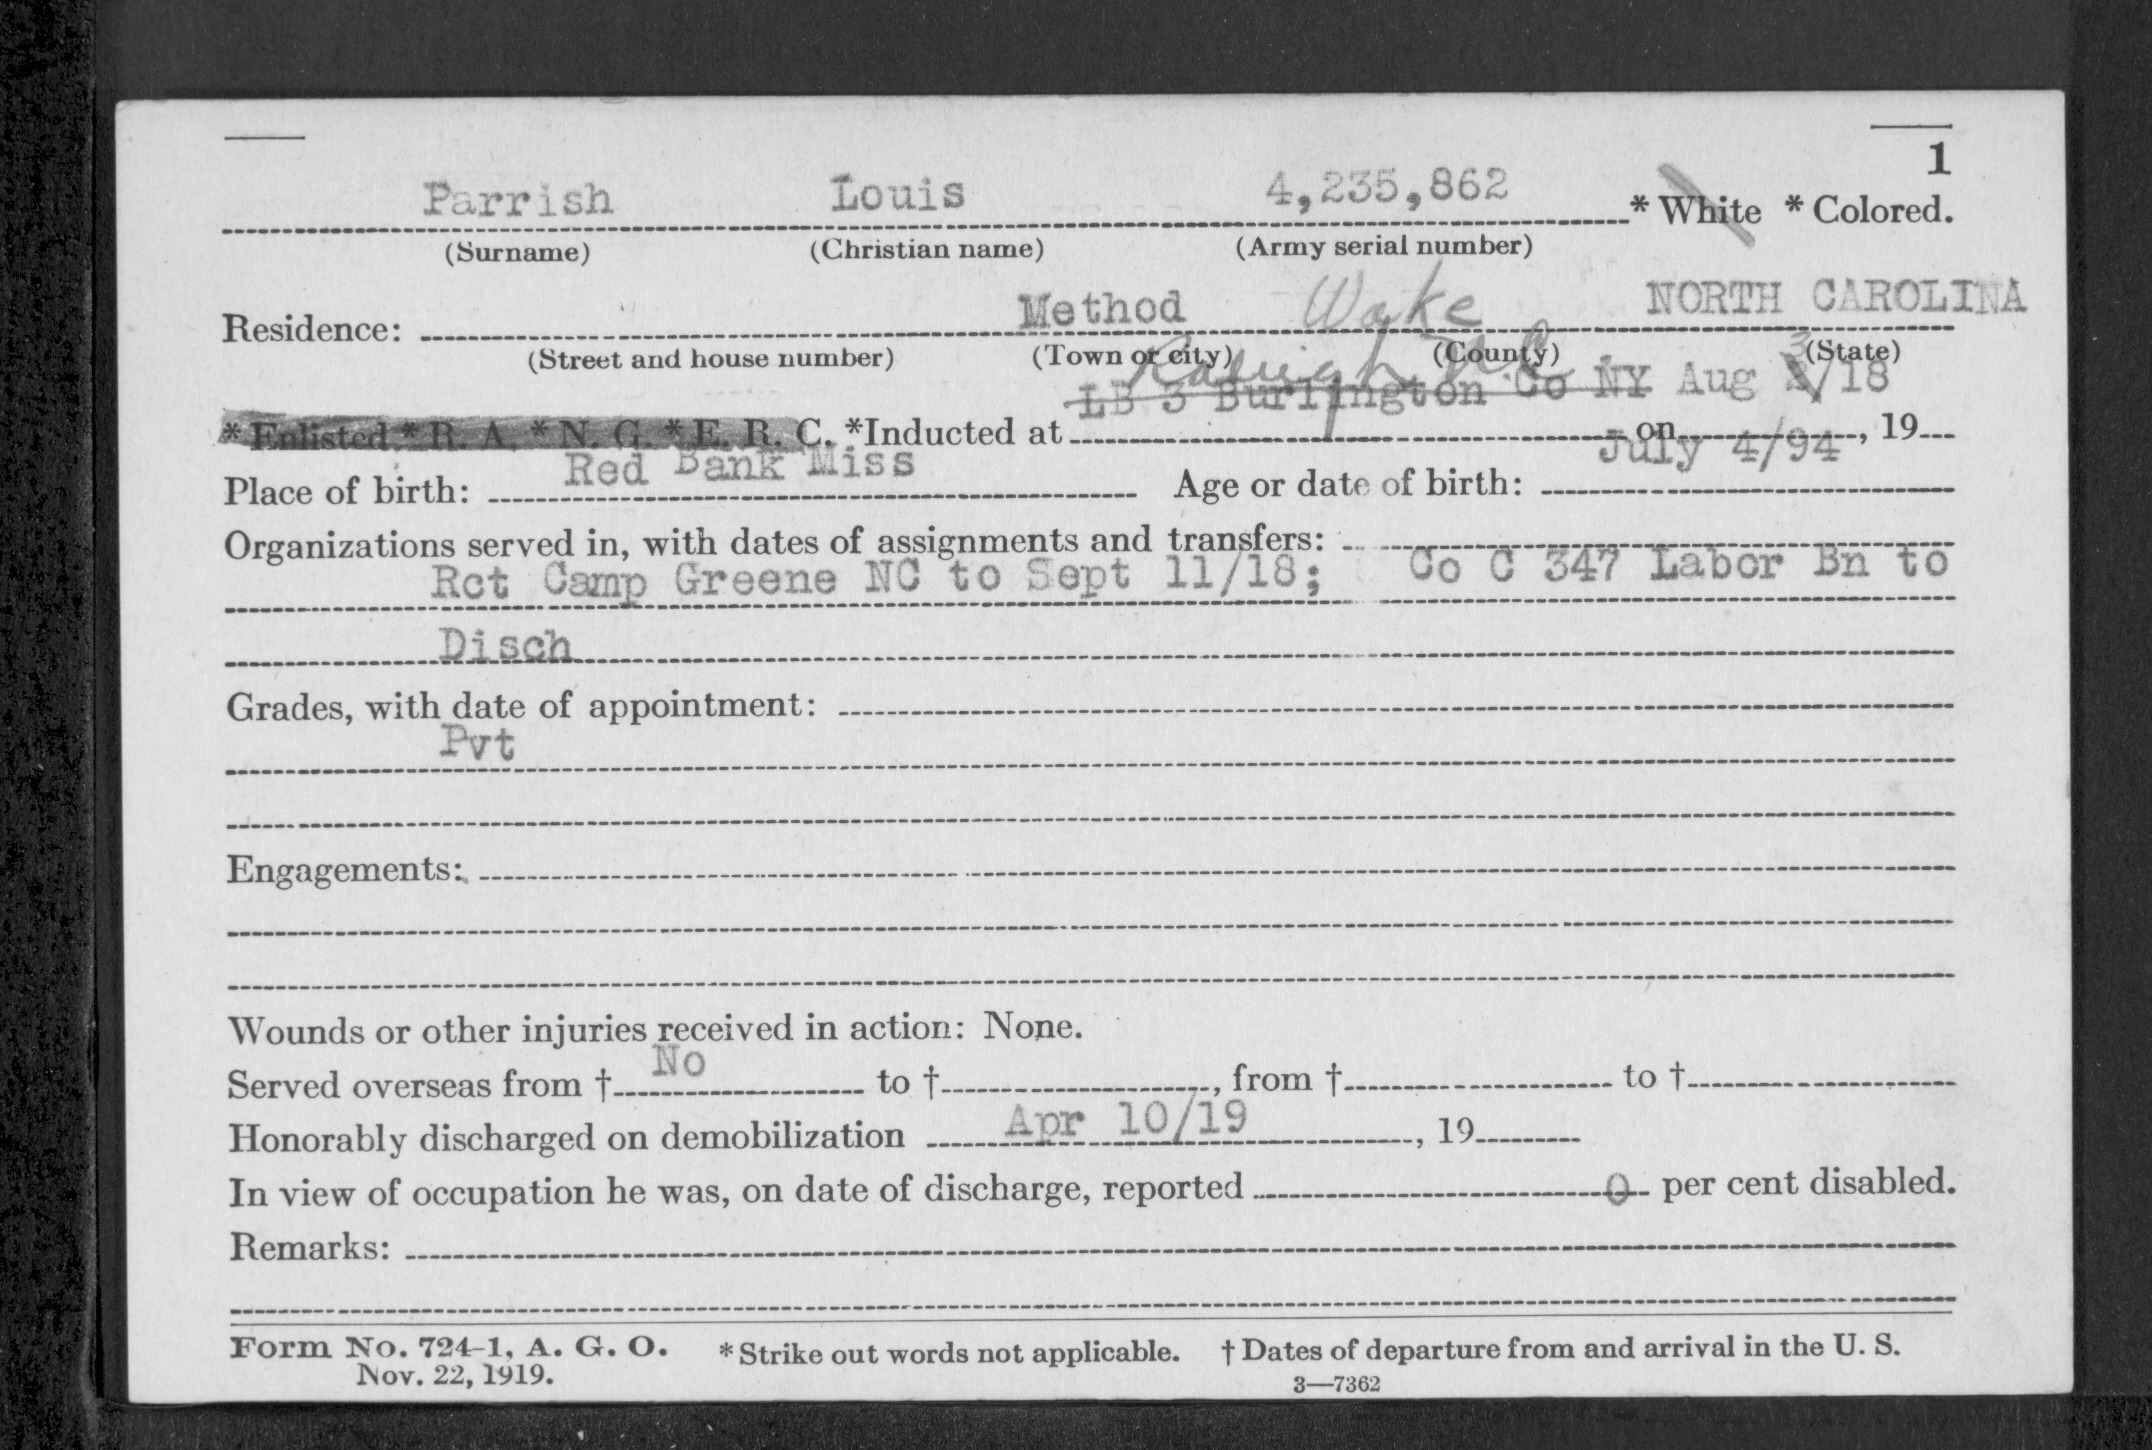 1
Parrish Louis 4,235,862 * White * Colored.
(Surname) (Christian name) (Army serial number)
Residence: Method Wake NORTH CAROLINA
(Street and house number) (Town or city) (County) (State)
Raleigh N C 3
LB 3 Burlington Co NY Aug /18
* Enlisted * R. A. * N. G. * E. R. C. *Inducted at on , 19
Place of birth: Red Bank Miss Age or date of birth: July 4/94
Organizations served in, with dates of assignments and transfers:
Rct Camp Greene NC to Sept 11/18; Co C 347 Labor Bn to
Disch
Grades, with date of appointment:
Pvt
Engagements:
Wounds or other injuries received in action: None.
Served overseas from † No to † , from † to †
Honorably discharged on demobilization Apr 10/19 , 19
In view of occupation he was, on date of discharge, reported 0 per cent disabled.
Remarks:
Form No. 724-1, A. G. O. * Strike out words not applicable. † Dates of departure from and arrival in the U. S.
Nov. 22, 1919. 3—7362